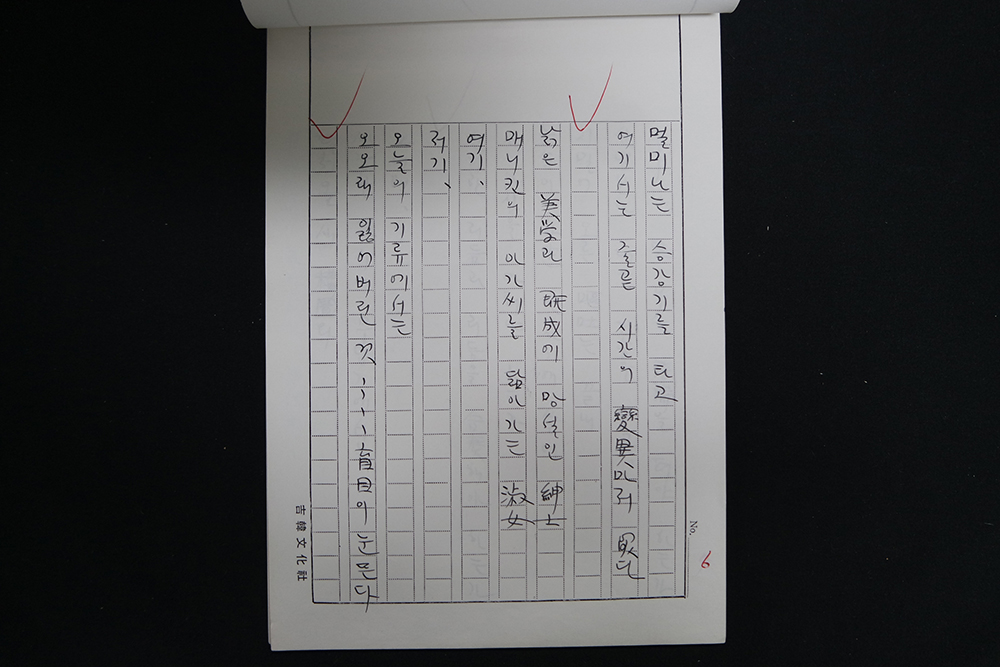 멀미나는 승강기를 타고
여기서는 줄곧 시간의 變異마저 없다
낡은 美学과 旣成에 망설인 紳士
매니킨의 아가씨를 닮아가는 淑女
여기、
저기、
오늘의 기류에서는
오오래 잃어버린 것 ···· 盲目의 눈
No. 6
吉韓文化社